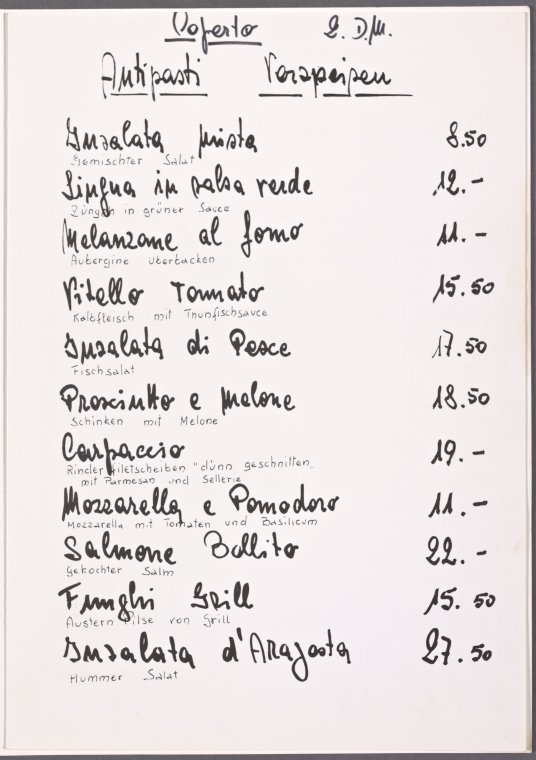 Coperto 2. D.M.
Antipasti Vorspeisen
Insalata mista 8.50
Gemischter Salat
Lingua in salsa verde 12.-
Zungen in grüner Sauce
Melanzane al forno 11.-
Aubergine überbacken
Vitello Tonnato 15.50
Kalbfleisch mit Thunfischsauce
Insalata di Pesce 17.50
Fischsalat
Prosciutto e melone 18.50
Schinken mit Melone
Carpaccio 19.-
Rinderfiletscheiben "dünn geschnitten"
mit Parmesan und Sellerie
Mozzarella e Pomodoro 11.-
Mozzarella mit Tomaten und Basilicum
Salmone Bollito 22.-
Gekochter Salm
Funghi Grill 15.50
Austern Pilse von Grill
Insalata d'Aragosta 27.50
Hummer Salat